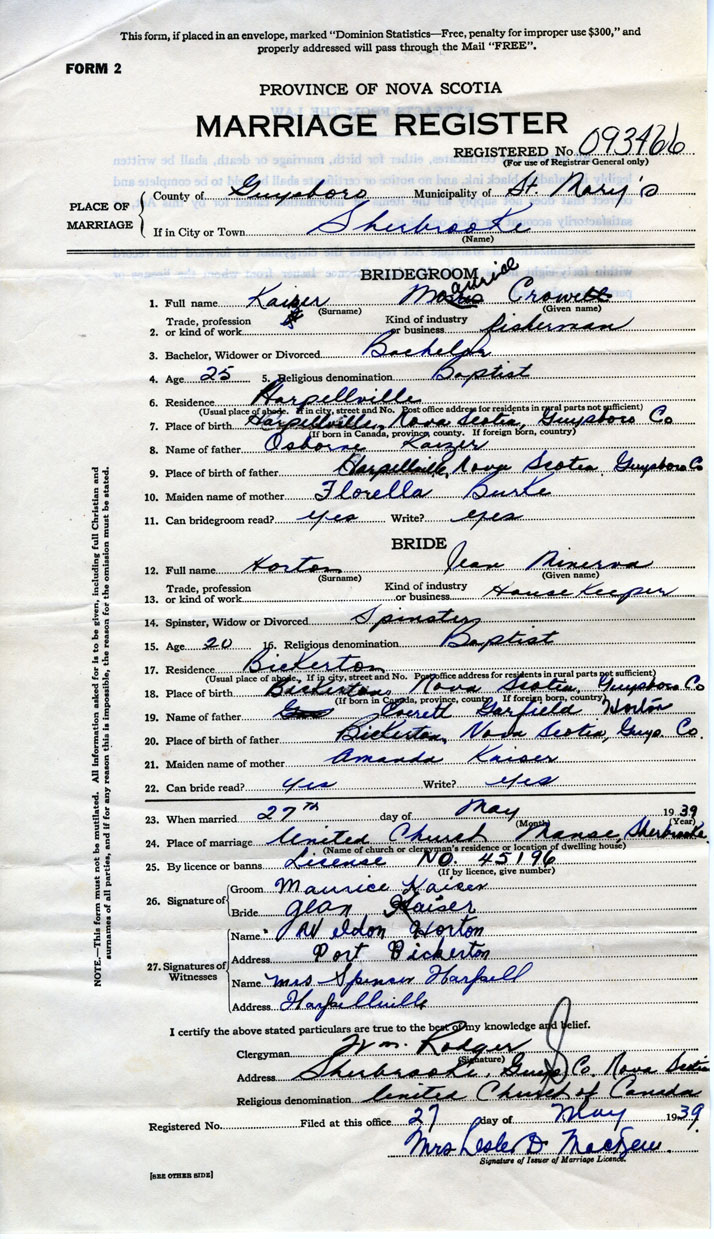 This form, if placed in an envelope, marked "Dominion Statistics—Free, penalty for improper use $300," and
properly addressed will pass through the Mail "FREE".
FORM 2
PROVINCE OF NOVA SCOTIA
MARRIAGE REGISTER
REGISTERED No. 093466
(For use of Registrar General only)
PLACE OF MARRIAGE
County of Guysboro Municipality of St. Mary's
If in City or Town Sherbrooke
(Name)
BRIDEGROOM
1. Full name Kaiser Maurice Crowell
(Surname) (Given name)
2. Trade, profession or kind of work Kind of industry or business fisherman
3. Bachelor, Widower or Divorced Bachelor
4. Age 25 5. Religious denomination Baptist
6. Residence Harpellville
(Usual place of abode. If in city, street and No. Post office address for residents in rural parts not sufficient)
7. Place of birth Harpellville, Nova Scotia, Guysboro Co
(If born in Canada, province, county. If foreign born, country)
8. Name of father Osborne Kaiser
9. Place of birth of father Harpellville, Nova Scotia, Guysboro Co
10. Maiden name of mother Florella Burke
11. Can bridegroom read? yes Write? yes
BRIDE
12. Full name Horton Jean Minerva
(Surname) (Given name)
13. Trade, profession or kind of work Kind of industry or business House Keeper
14. Spinster, Widow or Divorced Spinster
15. Age 20 16. Religious denomination Baptist
17. Residence Bickerton
(Usual place of abode. If in city, street and No. Post office address for residents in rural parts not sufficient)
18. Place of birth Bickerton, Nova Scotia, Guysboro Co
(If born in Canada, province, county. If foreign born, country)
19. Name of father Everett Garfield Horton
20. Place of birth of father Bickerton, Nova Scotia, Guys. Co.
21. Maiden name of mother Amanda Kaiser
22. Can bride read? yes Write? yes
23. When married 27th day of May 1939
(Month) (Year)
24. Place of marriage United Church Manse, Sherbrooke
(Name of church or clergyman's residence or location of dwelling house)
25. By licence or banns License NO. 45196
(If by licence, give number)
26. Signature of
Groom Maurice Kaiser
Bride Jean Kaiser
27. Signatures of Witnesses
Name Weldon Horton
Address Port Bickerton
Name Mrs Spencer Harpell
Address Harpellville
I certify the above stated particulars are true to the best of my knowledge and belief.
Clergyman Wm. Rodger
(Signature)
Address Sherbrooke, Guys. Co. Nova Scotia
Religious denomination United Church of Canada
Registered No. Filed at this office 27 day of May 1939
Mrs Leslie D
Signature of Issuer of Marriage Licence.
[SEE OTHER SIDE]
NOTE.—This form must not be mutilated. All information asked for is to be given, including full Christian and
surnames of all parties, and if for any reason this is impossible, the reason for the omission must be stated.